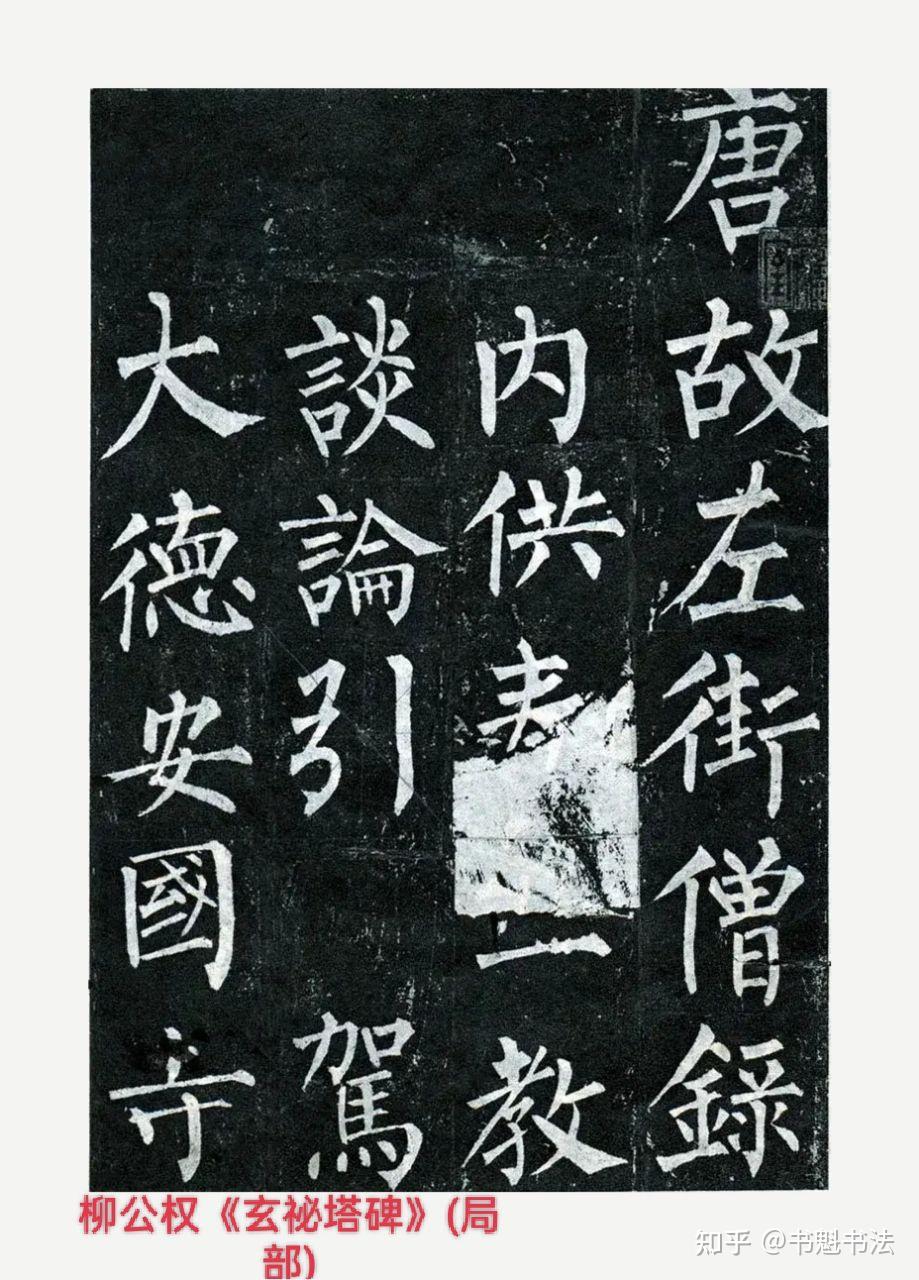 唐故左街僧錄
內供奉三教
談論引駕
大德安國寺
柳公权《玄祕塔碑》(局
部)
知乎 @书魁书法